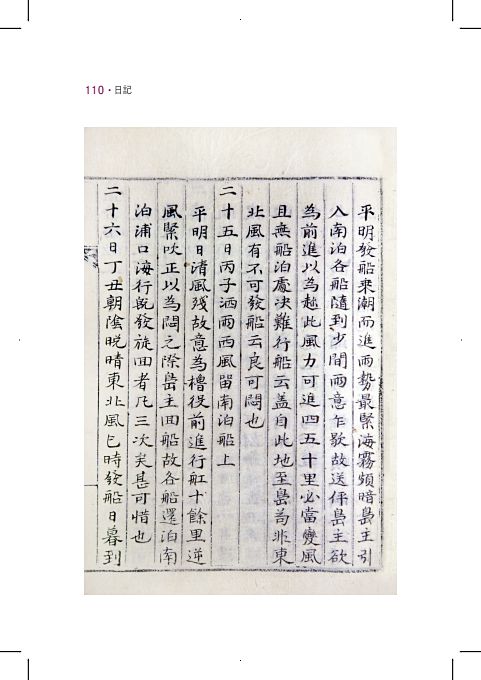 110・日記
平明發船乘潮而進雨勢最緊海霧頻暗島主引
入南泊各船隨到少間雨意乍歇故送伻島主欲
為前進以為趁此風力可進四五十里必當變風
且無船泊處决難行船云盖自此地至島為非東
北風有不可發船云良可悶也
二十五日丙子洒雨西風留南泊船上
平明日淸風殘故意為櫓役前進行舡十餘里逆
風緊吹正以為悶之際島主回船故各船還泊南
泊浦口海行旣發旋回者凡三次矣甚可惜也
二十六日丁丑朝陰晩晴東北風巳時發船日暮到